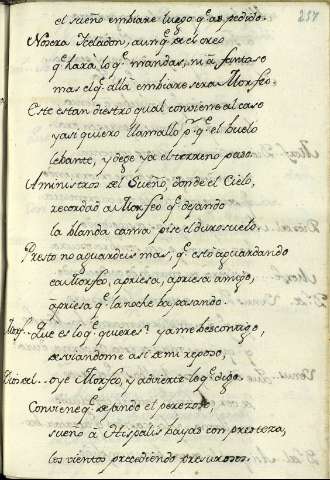 257
el sueño embiare luego q̃ as pedido.
No sera Iceladon, aunq̃ de el creo
q̃ hará lo q̃ mandas, ni a fantaso
mas el q̃ allá embiare sera Morfeo.
Este es tan diestro qual conviene al caso
y asi quiero llamallo pa q̃ el buelo
lebante, y deje ya el terreno paso.
Aministros del Sueño, donde el Cielo,
recordad a Morfeo q̃ dejando
la blanda cama pise el duro suelo.
Presto no aguardeis mas, q̃ estó aguardando
ea Morfeo, apriesa, apriesa amigo,
apriesa q̃ la noche ba pasando.
Morf.. Que es lo q̃ quieres? ya me bes contigo,
desviandome asi de mi reposo,
Dios del.. oye Morfeo, y advierte lo q̃ digo.
Conviene q̃ dejando el perezoso,
sueño à Hispalis bayas con presteza,
los vientos precediendo presuroso.